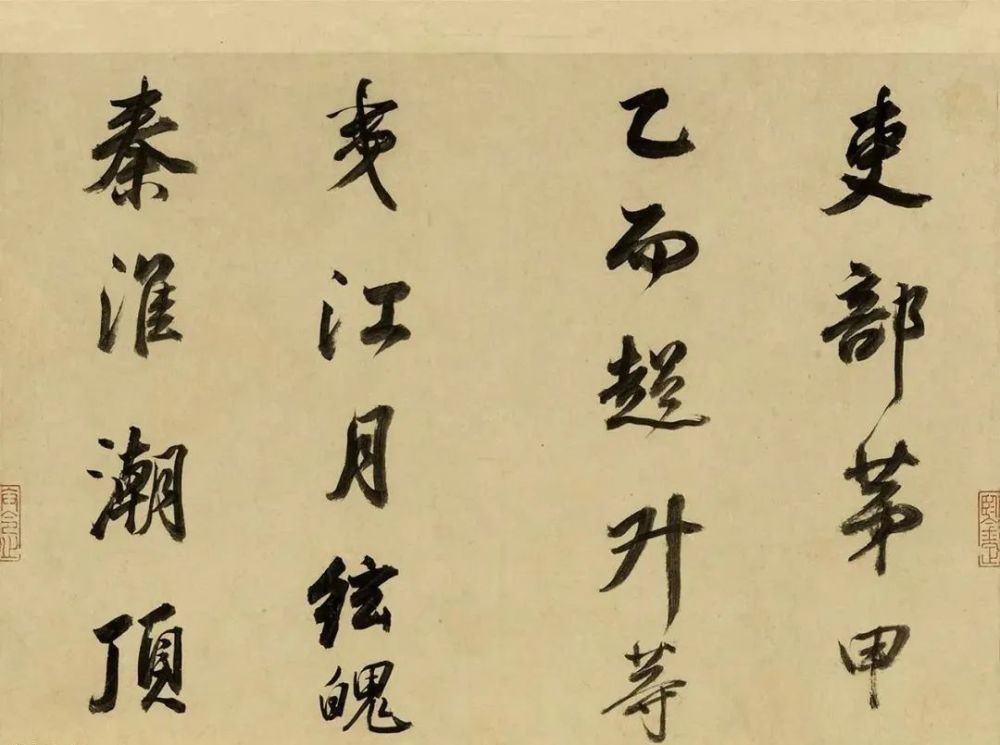 吏部第甲
乙而超升等
夷江月弦魄
秦淮潮頂